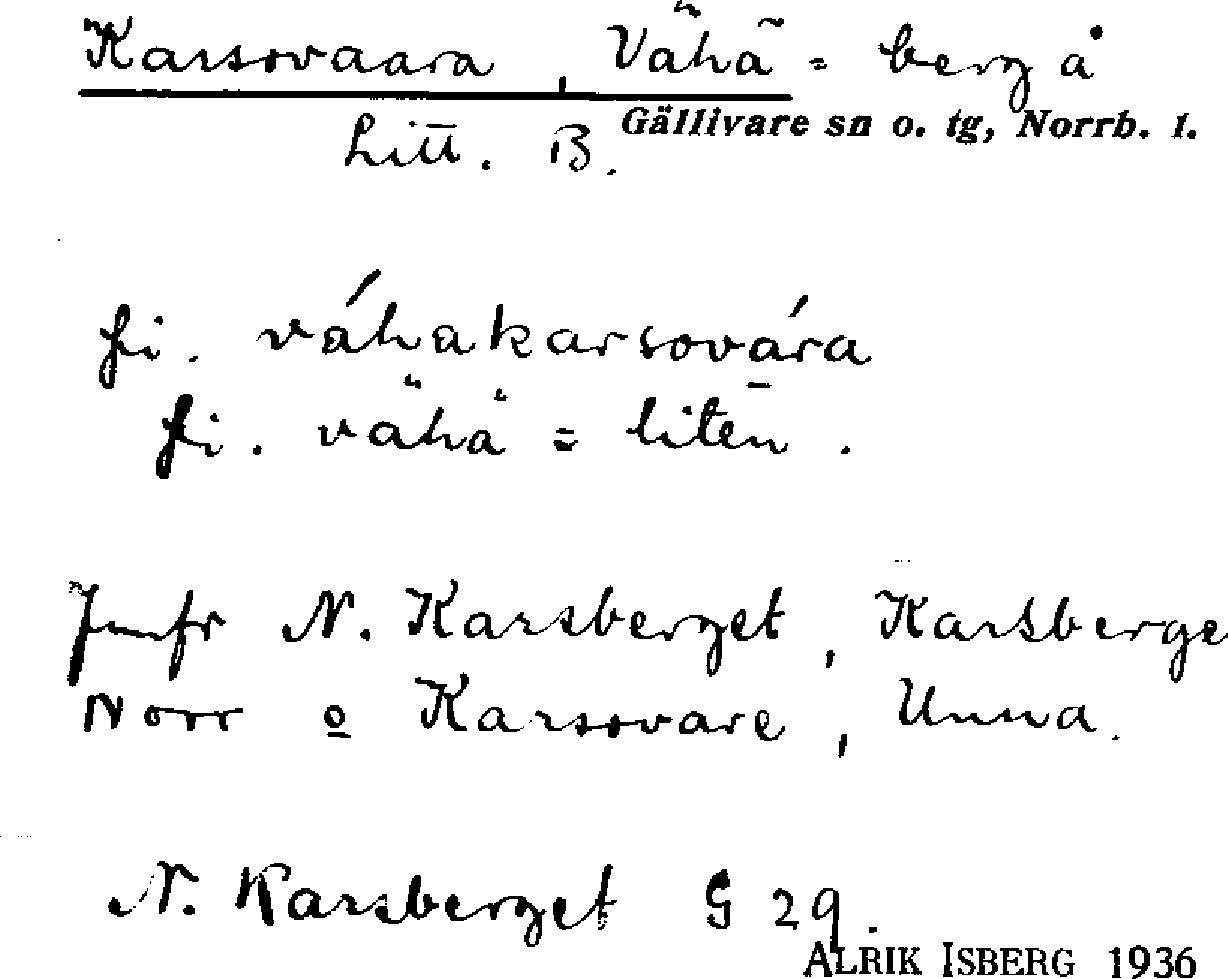 Karsovaara, Vähä = berg å
Gällivare sn o. tg, Norrb. l.
Litt. B.
fi. váhakarsovára
fi. vähä = liten.
Jmfr N. Karsberget, Karsberge
Norr o Karsovare, Unna.
N. Karsberget G 29.
ALRIK ISBERG 1936